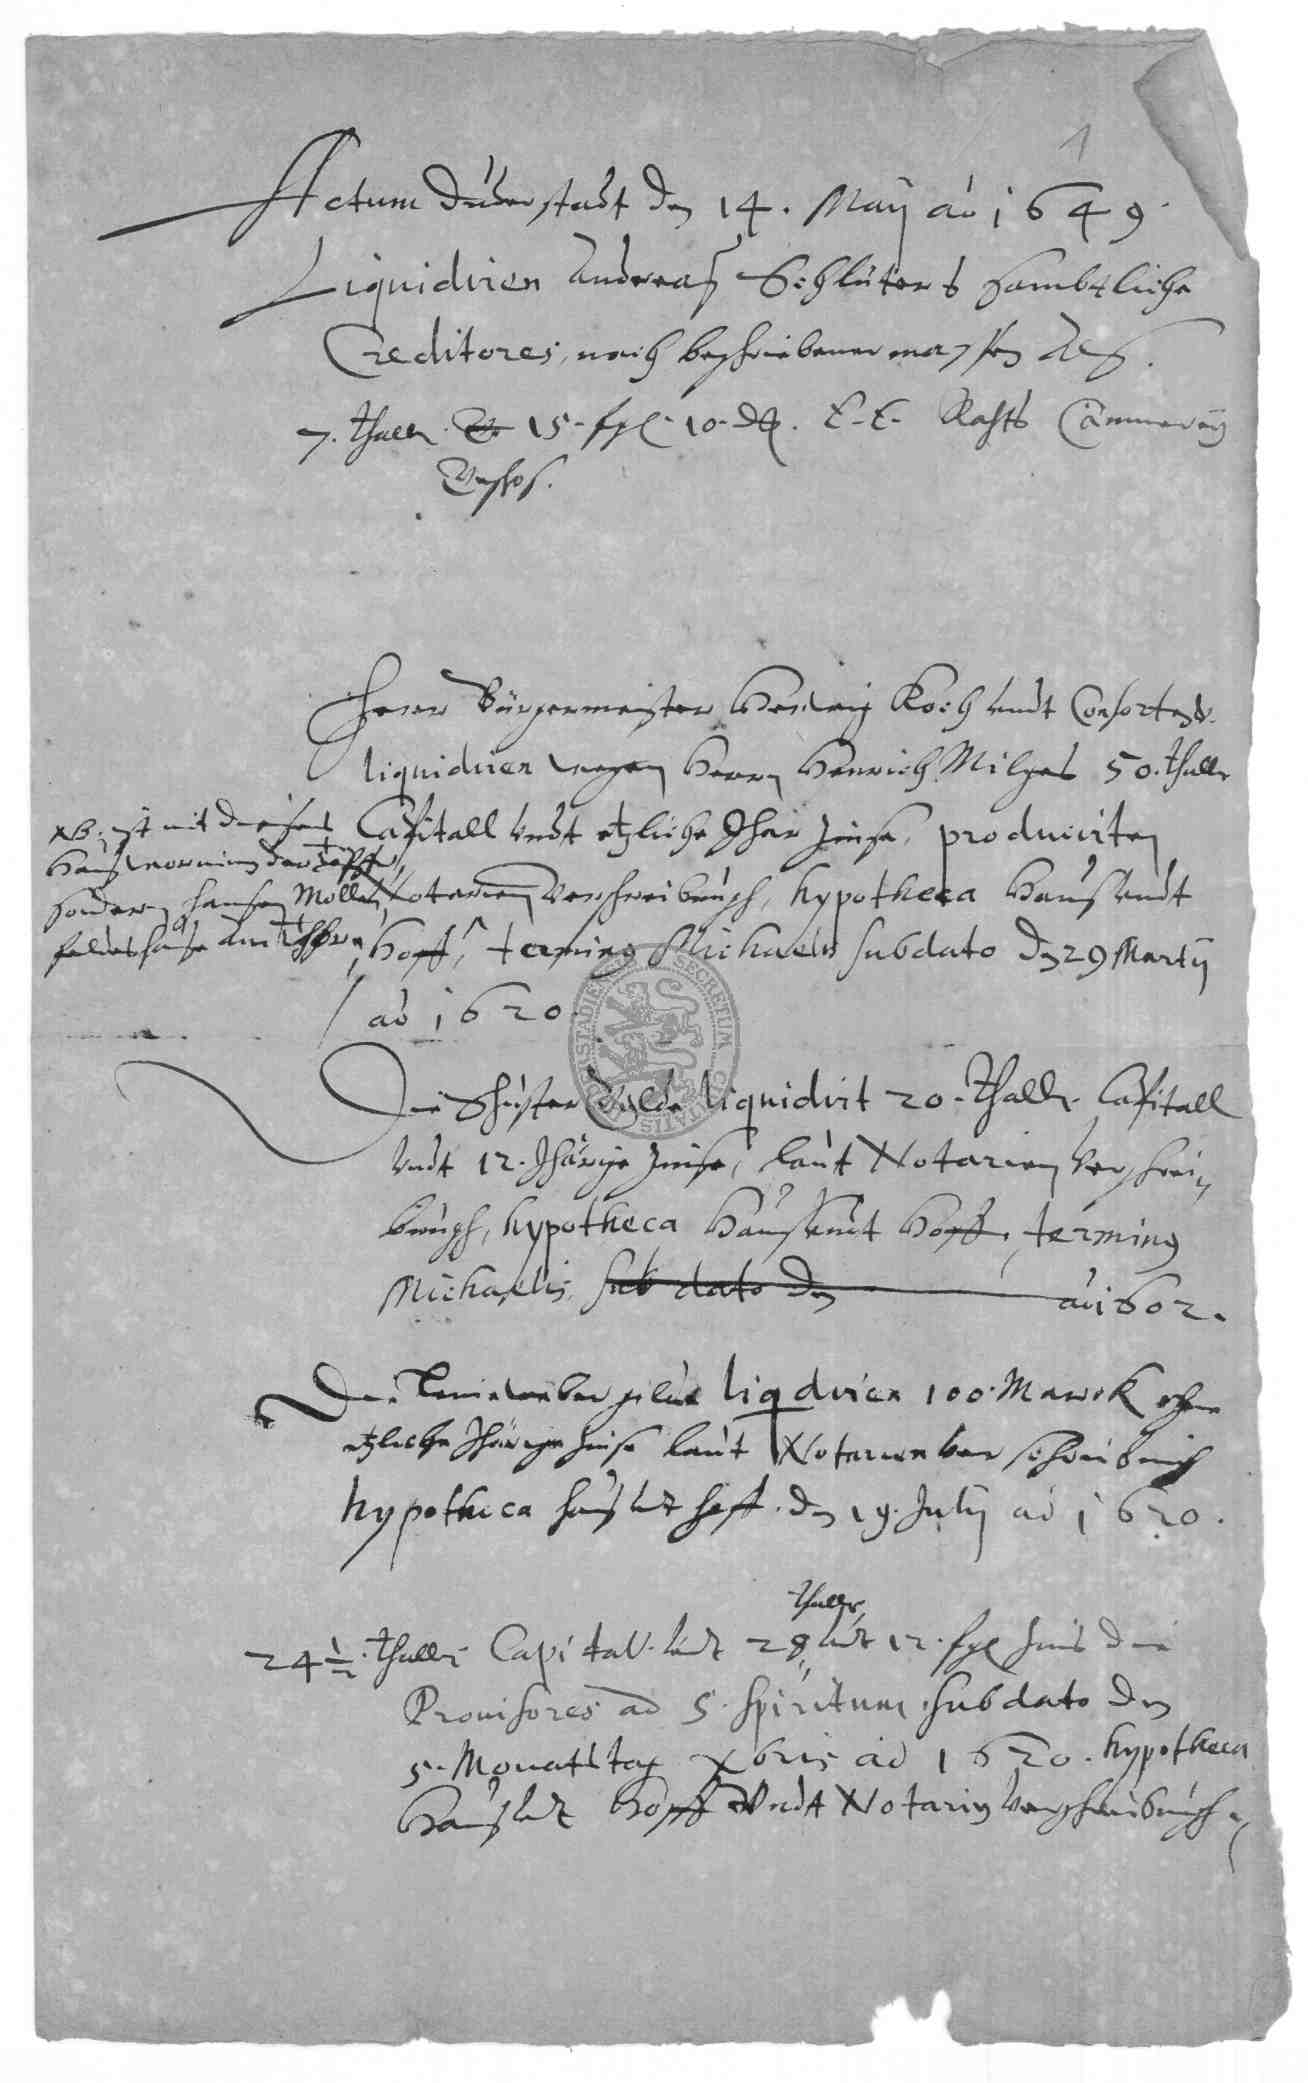 1
Actum Duderstadt den 14. Maij ao 1649
Liquidiren Andreas Schlüters sambtliche
Creditores, nach beschriebener massen Als.
7. thall. 15. ßgl. 10. d. E. E. Rahts Cämmereÿ
Herr Bürgermeister Herwig Koch undt Consorten
liquidiren wegen Herrn Henrich Milges 50. thall
Capitall Undt etzliche Jhar Zinse, producirten
Notarien verschreibungh, hypotheca Hauß Undt
Hoff, termino Michaelis sub dato den 29 Martij
ao 1620.
NB. ist mit
Hauß
sondern hansen Moller
Die Schuster Gylde liquidirt 20. thall. Capitall
Undt 12. Jhärige Zinse, laut Notarien Verschrei
bungh, hypotheca Hauß Undt Hoff, termino
Michaelis, sub dato den ao 1602.
Die Leineweber gilde liqdiren 100. Marck
etzliche Jhärige Zinse laut Notarien ver schreibung
hypotheca hauß undt hoff. den 19. Julij ao 1620.
24 1/2 thall. Capitall. undt 28 thall. undt 12. ßgl Zins die
Provisores ad S. Spiritum sub dato den
5. Monatstag Xbris ao 1620. hypotheca
Hauß undt Hoff Undt Notarig Verschreibungh
SECRETUM